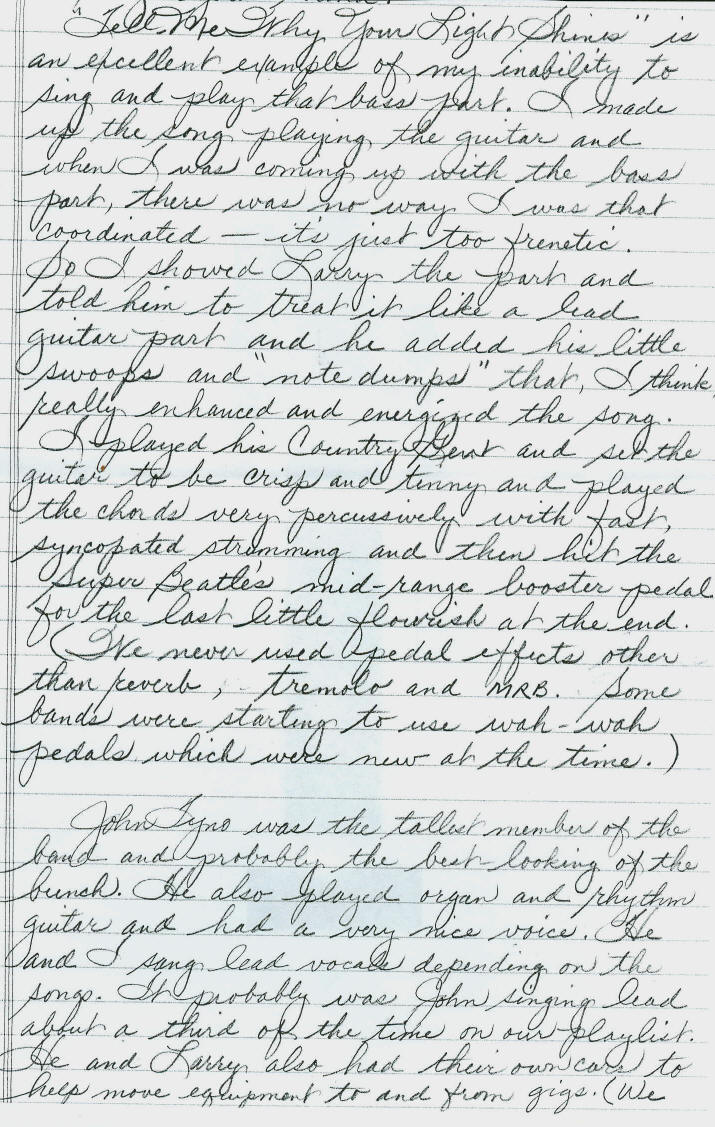 "Tell Me Why Your Light Shines" is
an excellent example of my inability to
sing and play that bass part. I made
up the song playing the guitar and
when I was coming up with the bass
part, there was no way I was that
coordinated — it's just too frenetic.
So I showed Larry the part and
told him to treat it like a lead
guitar part and he added his little
swoops and "note dumps" that, I think,
really enhanced and energized the song.
I played his Country Gent and set the
guitar to be crisp and tinny and played
the chords very percussively with fast,
syncopated strumming and then hit the
Super Beatle's mid-range booster pedal
for the last little flourish at the end.
(I've never used pedal effects other
than reverb, tremolo and MRB. Some
bands were starting to use wah-wah
pedals which were new at the time.)
John Tyno was the tallest member of the
band and probably the best looking of the
bunch. He also played organ and rhythm
guitar and had a very nice voice. He
and I sang lead vocals depending on the
songs. It probably was John singing lead
about a third of the time on our playlist.
He and Larry also had their own cars to
help move equipment to and from gigs. (We